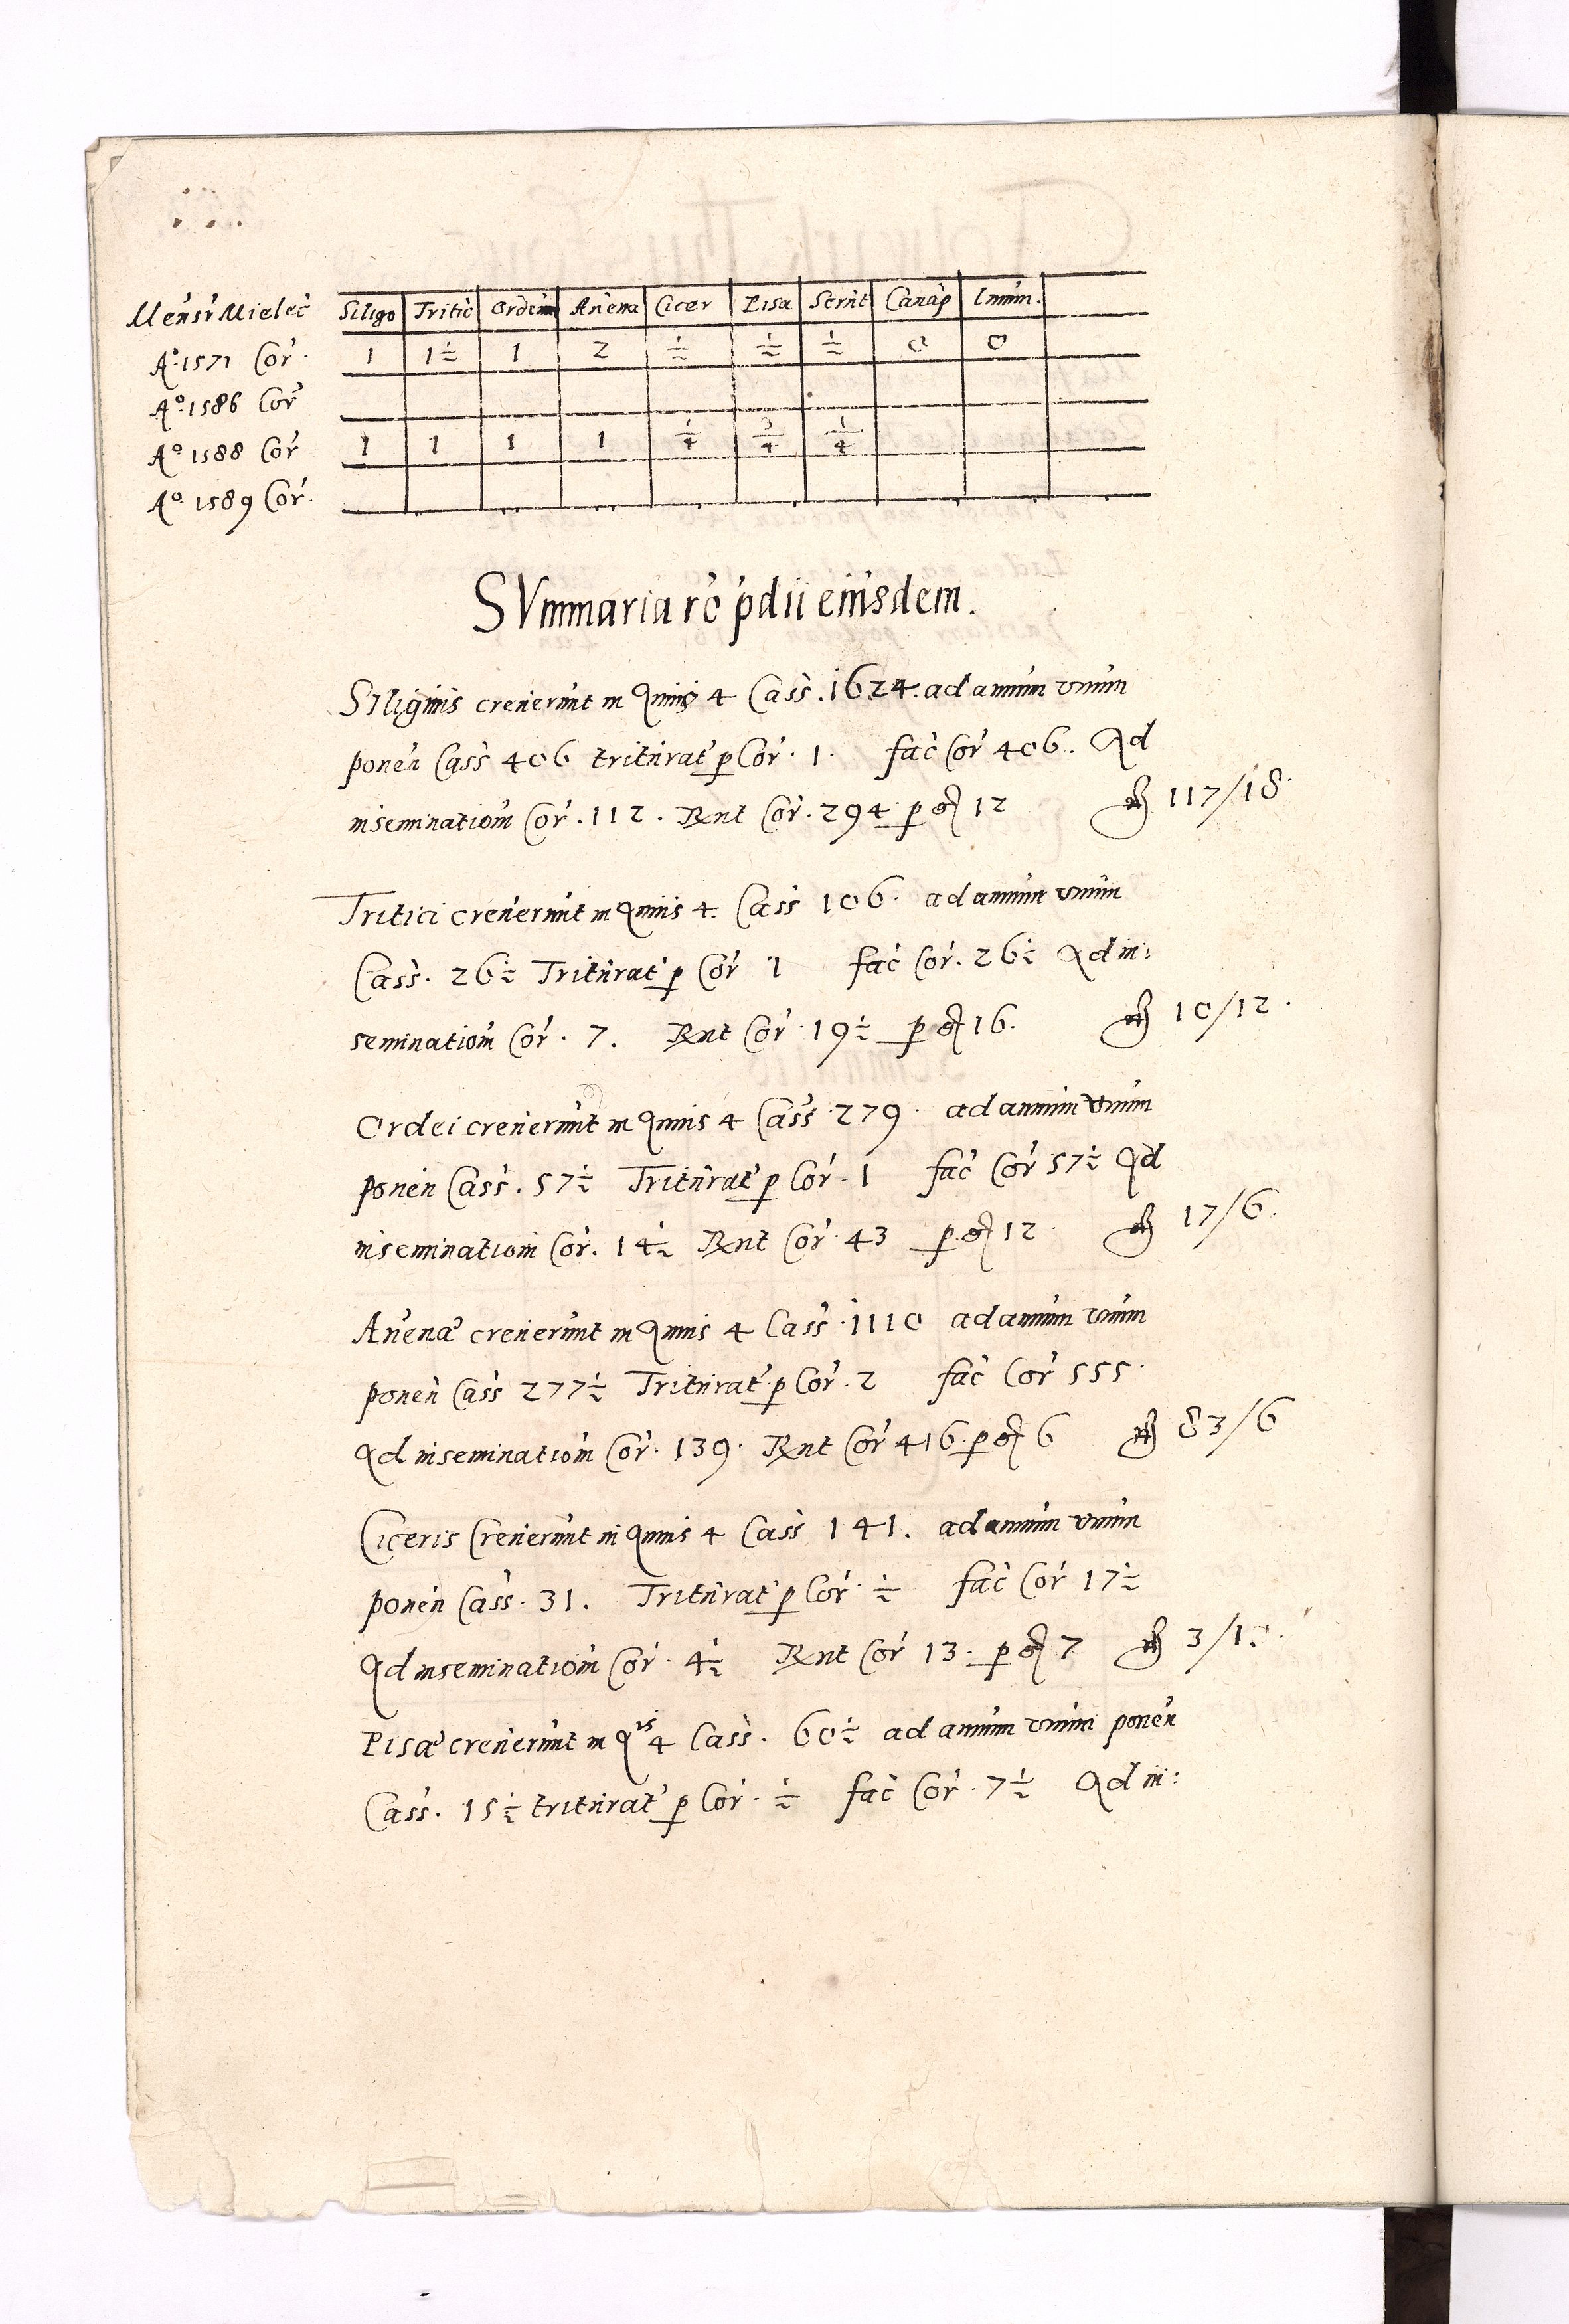 Mensr Mielec Siligo Tritic Ordeum Auena Cicer Pisa Sernt Canap Linum.
Ao. 1571 Cor. 1 1½ 1 2 ½ ½ ½ 0 0
Ao. 1586 Cor
Ao. 1588 Cor 1 1 1 1 1/4 3/4 1/4
Ao. 1589 Cor.
SVmmaria rc pdii eiusdem.
Siliginis creuerunt in Qnnis 4 Cass. 1624. ad annum vnum
ponen Cass 406 triturat p Cor. 1. fac Cor 406. Qd
inseminationi Cor. 112. Rnt Cor. 294 p gr 12 mr 117/18.
Tritici creuerunt in Qnnis 4. Cass 106. ad annum vnum
Cass. 26½ Triturat p Cor 1 fac Cor. 26½ Qd in:
seminationi Cor. 7. Rnt Cor. 19½ p gr 16. mr 10/12.
Ordei creuerunt in Qnnis 4 Cass. 279. ad annum vnum
ponen Cass. 57½ Triturat p Cor. 1 fac Cor 57½ Qd
inseminationi Cor. 14½ Rnt Cor. 43 p. gr 12. mr 17/6.
Auenae creuerunt in Qnnis 4 Cass. 1110 ad annum vnum
ponen Cass 277½ Triturat p Cor. 2 fac Cor 555.
Qd inseminationi Cor. 139. Rnt Cor 416. p gr 6 mr 83/6
Ciceris Creuerunt in Qnnis 4 Cass 141. ad annum vnum
ponen Cass. 31. Triturat p Cor. ½ fac Cor 17½
Qd inseminationi Cor. 4½ Rnt Cor 13. p gr 7 mr 3/1.
Pisae creuerunt in Qis 4 Cass. 60½ ad annum vnum ponen
Cass. 15½ triturat p Cor. ½ fac Cor. 7½ Qd in: